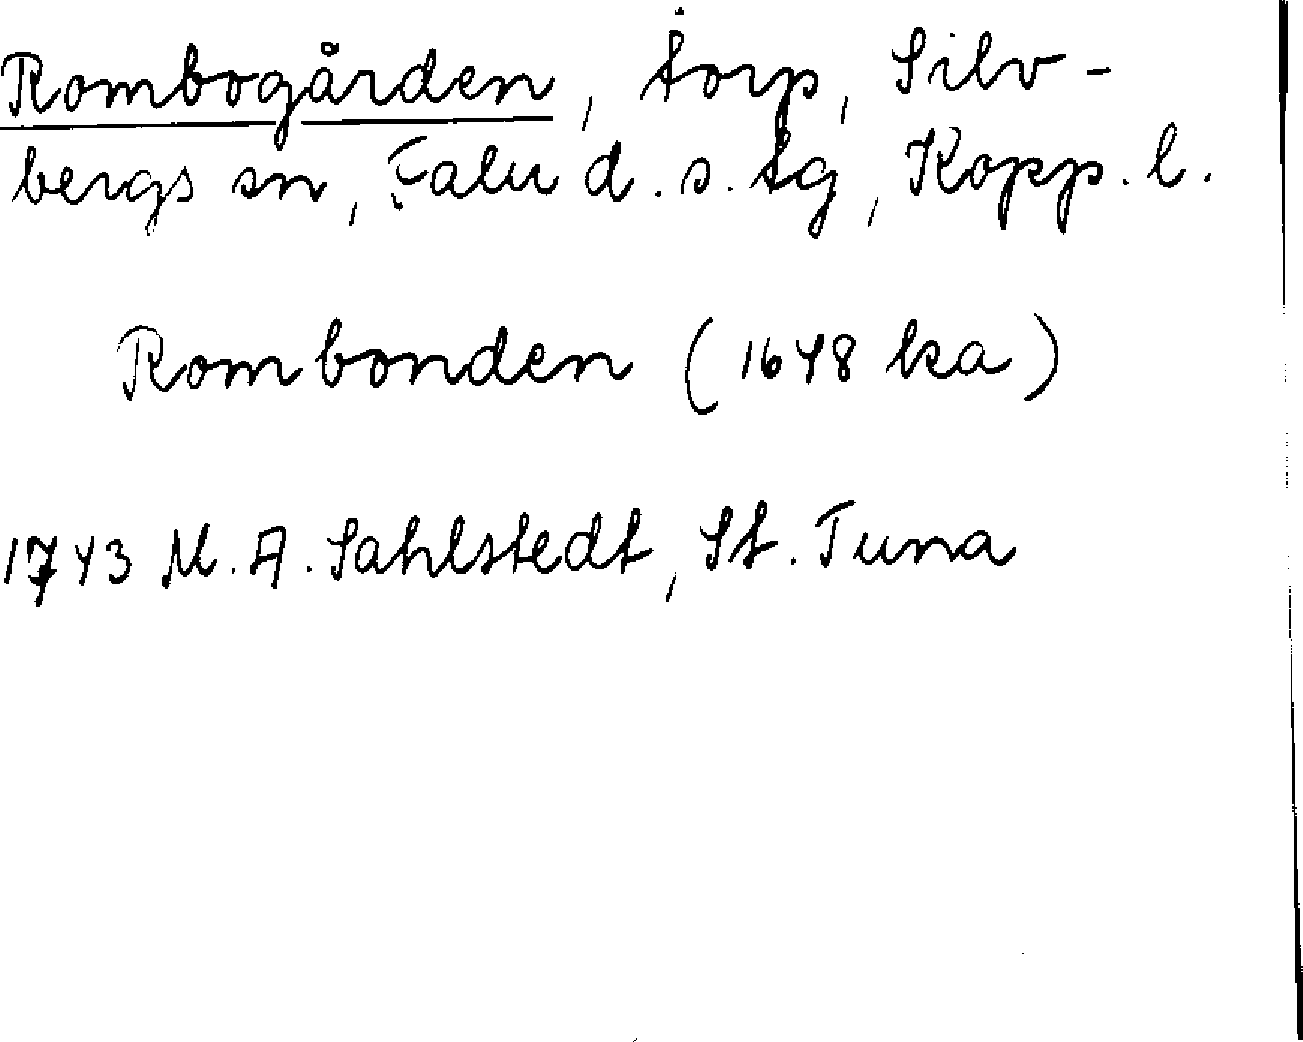 Rombogården, torp, Silv-
bergs sn, Falu d. s. tg, Kopp. l.
Rombonden (1648 ka)
1743 M. A. Sahlstedt, St. Tuna